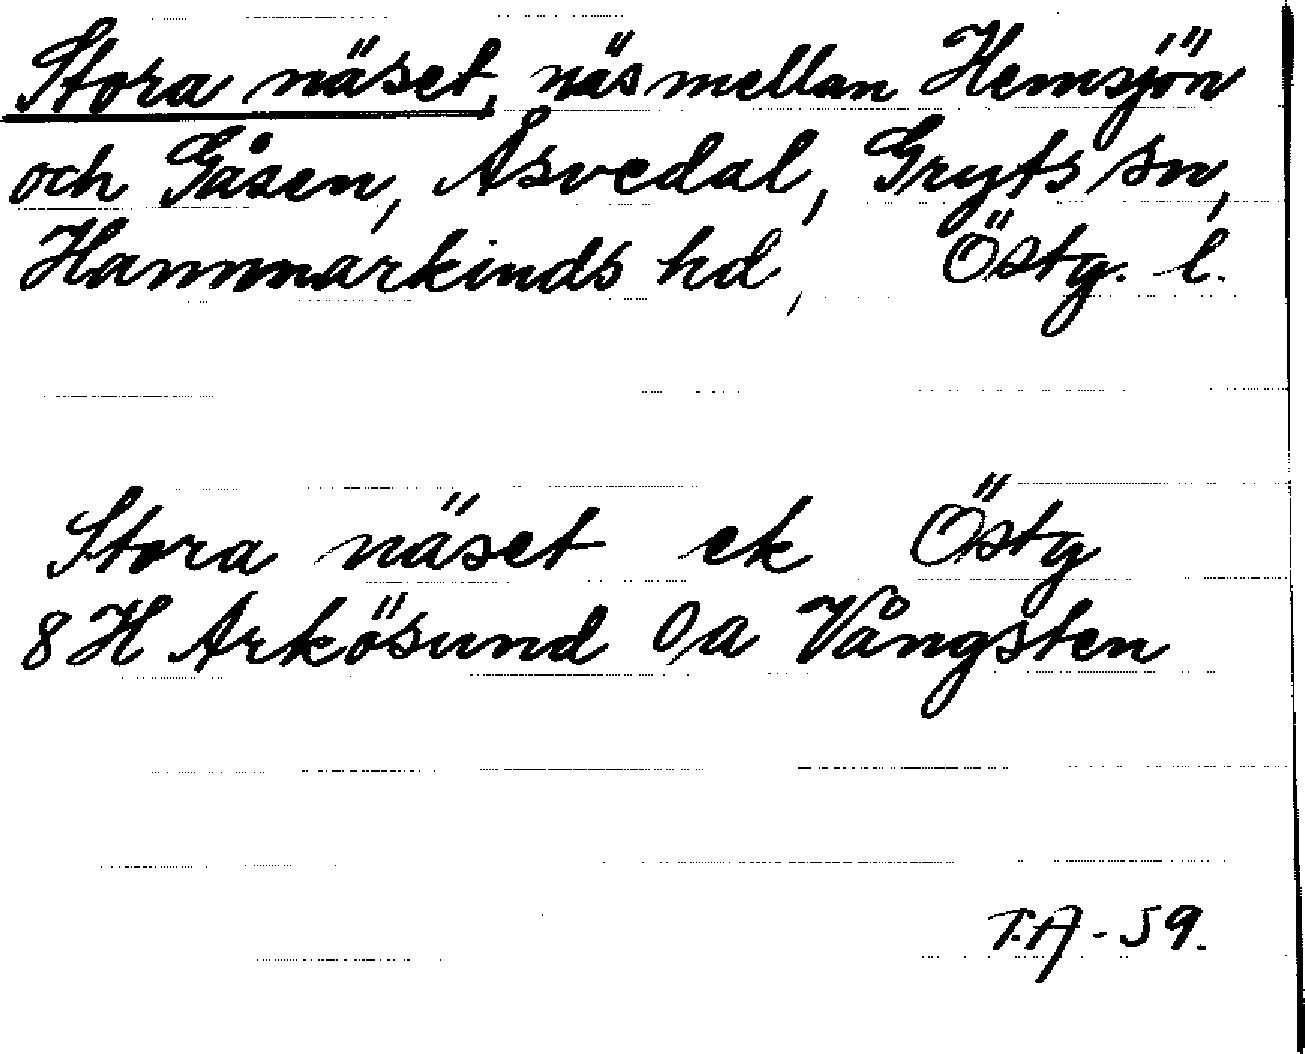 Stora näset, näs mellan Hemsjön
och Gåsen, Åsvedal, Gryts sn,
Hammarkinds hd, Östg. l.
Stora näset ek Östg
8 H Arkösund O/a Vångsten
T.A - 59.